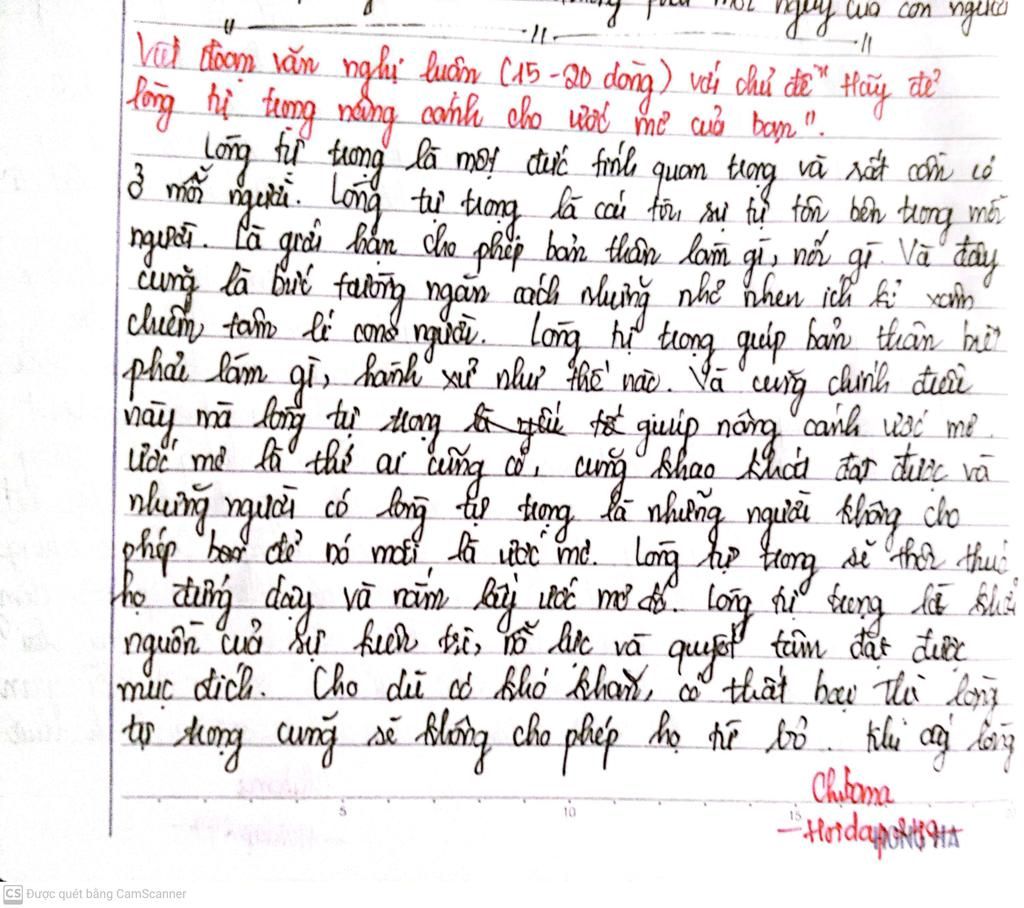 của con người
Viết đoạn văn nghị luân (15-20 dòng) với chủ đề "Hãy để
lòng tự trọng nâng cánh cho ước mơ của bạn".
Lòng tự trọng là một đức tính quan trọng và rất cần có
ở mỗi người. Lòng tự trọng là cái tôi, sự tự tôn bên trong mỗi
người. Là giới hạn cho phép bản thân làm gì, nói gì. Và đây
cũng là bức tường ngăn cách những nhỏ nhen ích kỉ xâm
chiếm tâm lí con người. Lòng tự trọng giúp bản thân biết
phải làm gì, hành xử như thế nào. Và cũng chính điều
này mà lòng tự trọng giúp nâng cánh ước mơ.
Ước mơ là thứ ai cũng có, cũng khao khát đạt được và
những người có lòng tự trọng là những người không cho
phép để nó mãi là ước mơ. Lòng tự trọng sẽ thôi thúc
họ đứng dậy và nắm lấy ước mơ đó. Lòng tự trọng là khởi
nguồn của sự kiên trì, nỗ lực và quyết tâm đạt được
mục đích. Cho dù có khó khăn, có thất bại thì lòng
tự trọng cũng sẽ không cho phép họ từ bỏ. Khi lòng
5 10 15
HONG HA
CS Được quét bằng CamScanner